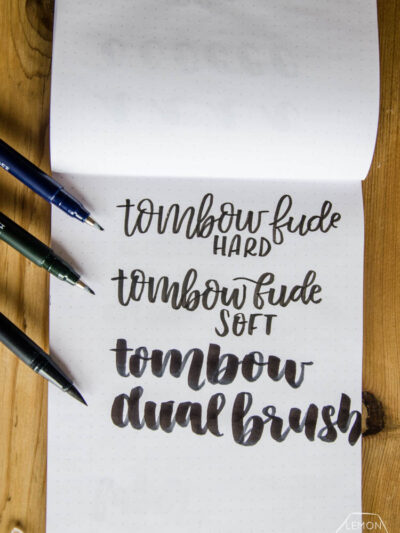 tombow fude
HARD
tombow fude
SOFT
tombow
dual brush
LEMON